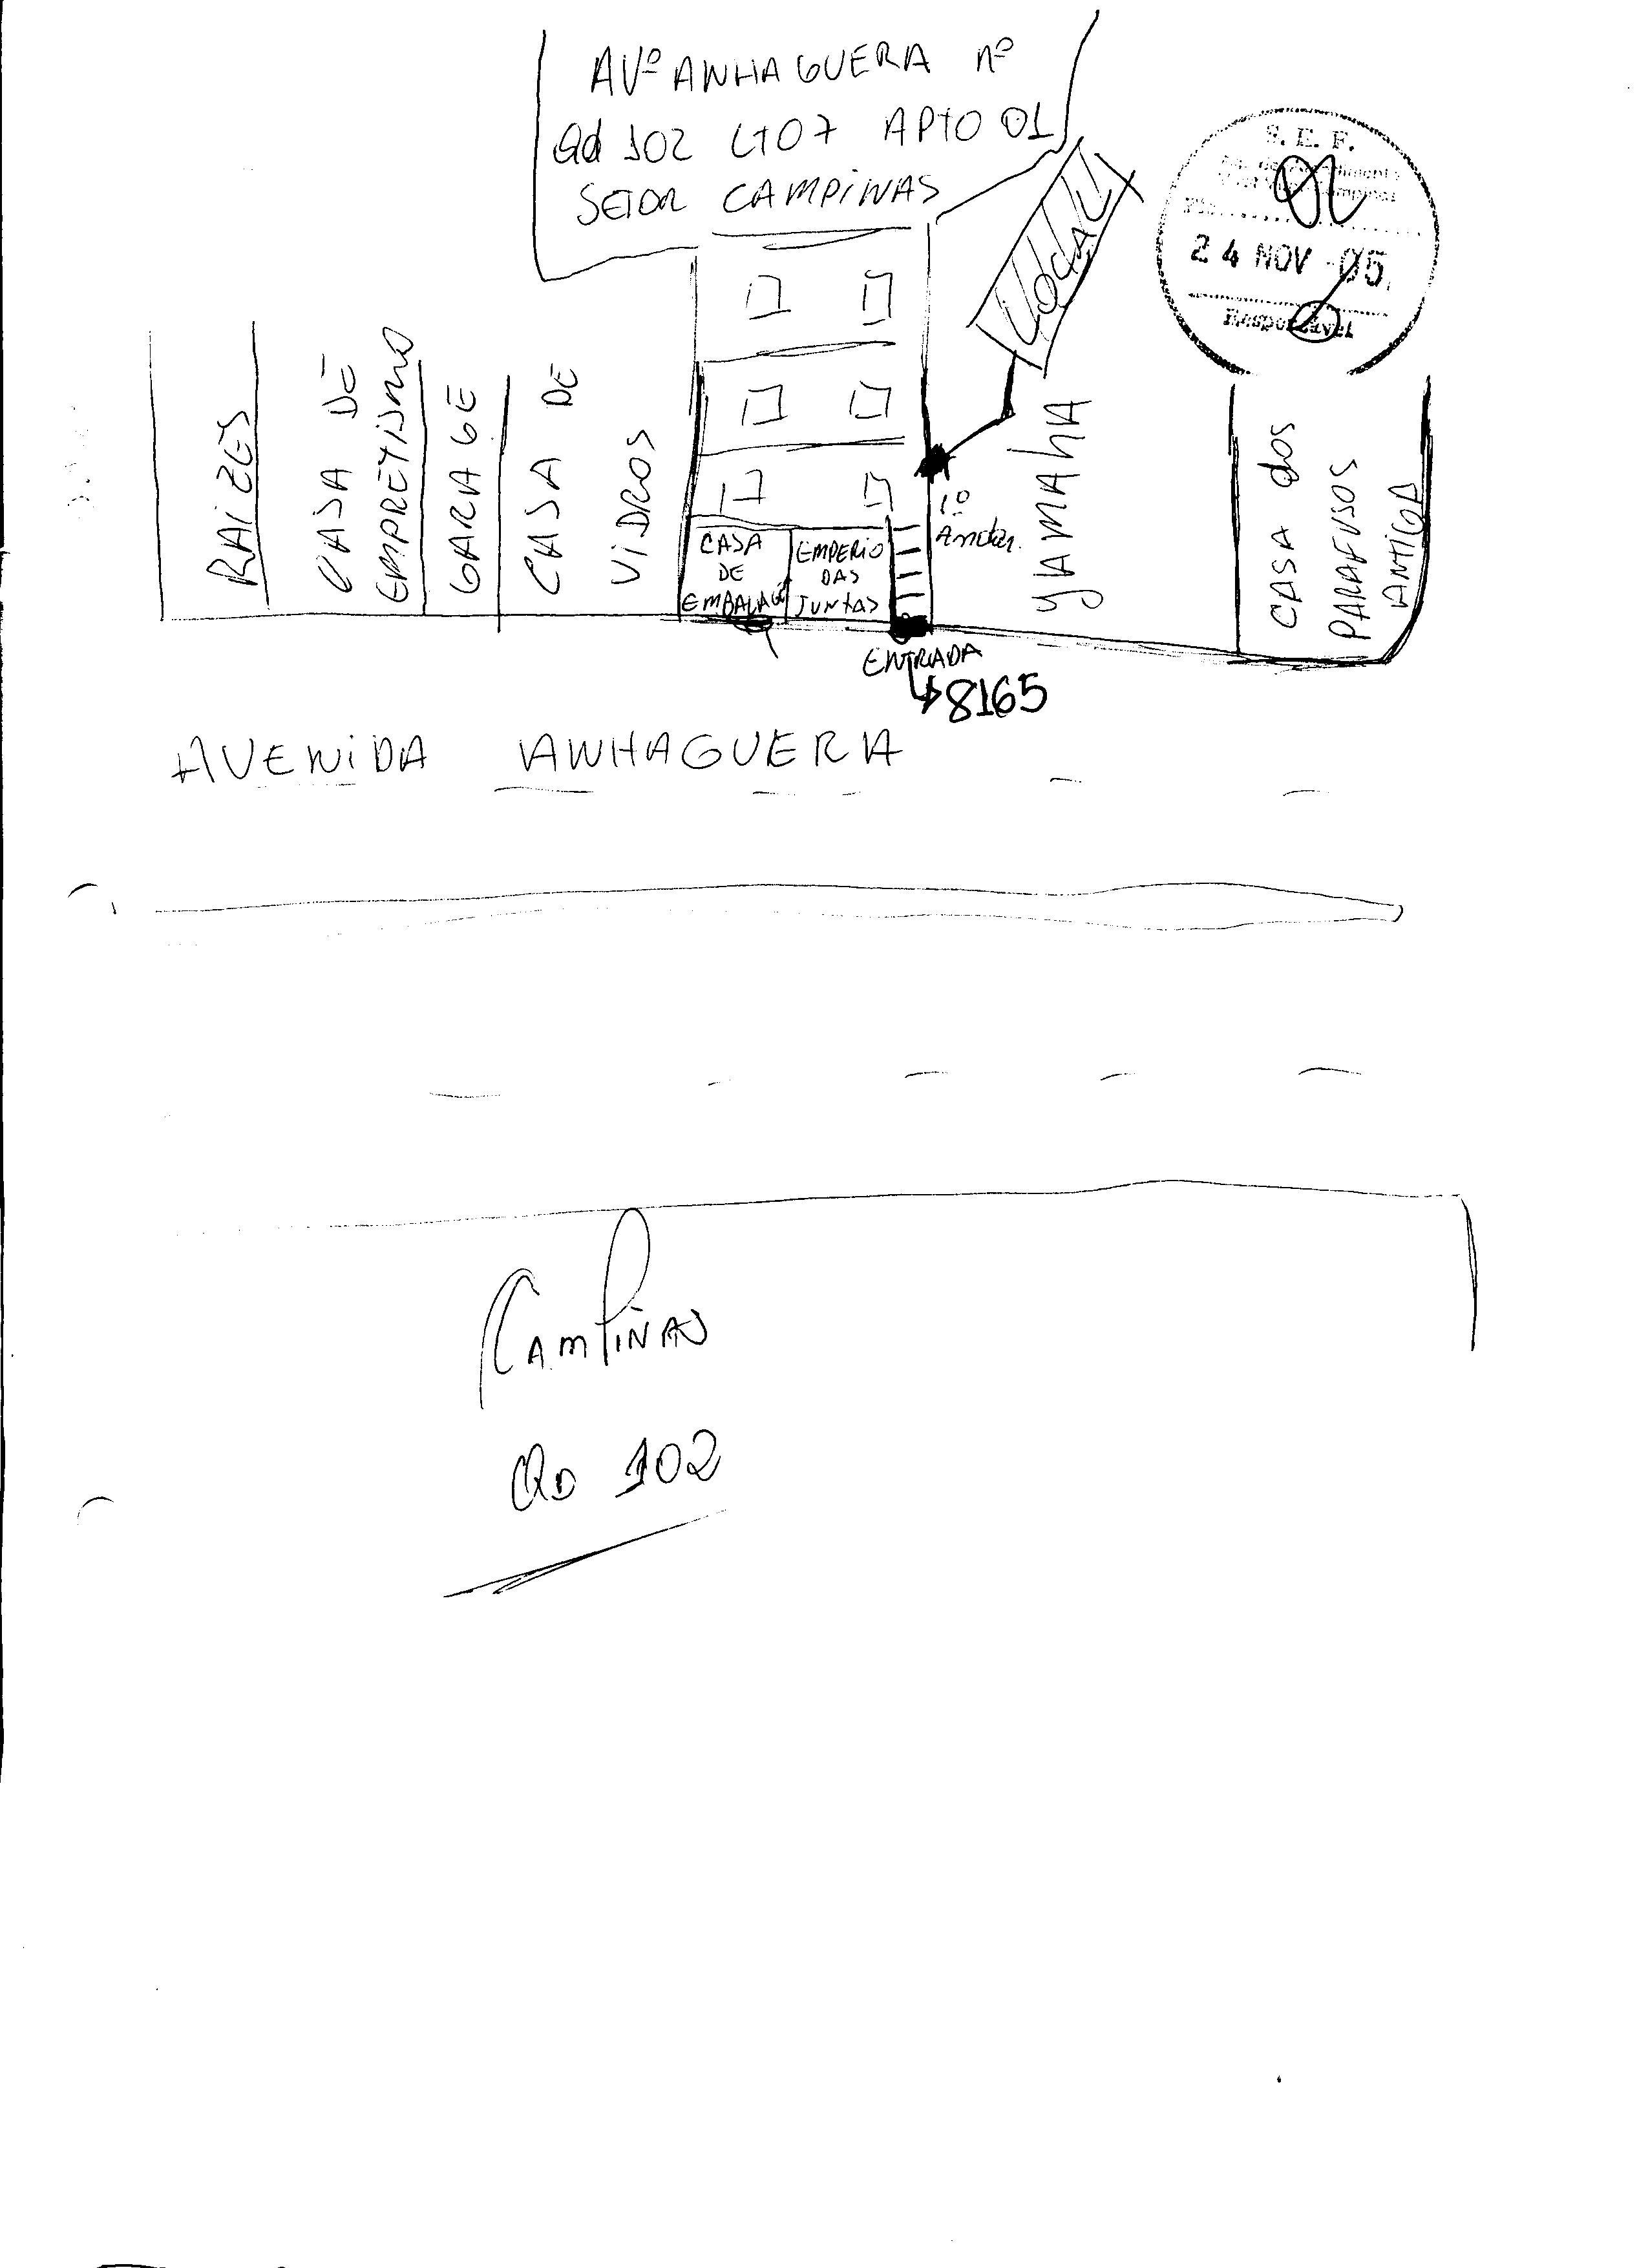 AVº ANHAGUERA nº
Qd 102 LT07 APTO 01
SETOR CAMPINAS
LOCAL
S. E. F.
24 NOV 05
Responsável
RAIZES
CASA DE
EMPRETISMO
GARAGE
CASA DE
VIDROS
CASA
DE
EMBALAGE
EMPERIO
DAS
JUNTAS
1º
Andar.
YAMAHA
CASA dos
PARAFUSOS
ANTIGA
ENTRADA
8165
AVENIDA ANHAGUERA
CAMPINAS
QD 102